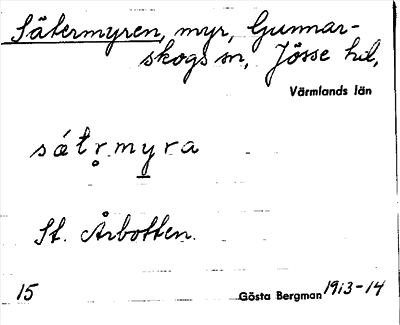 Sätermyren, myr, Gunnar-
skogs sn, Jösse hd,
Värmlands län
sǽtr̥myra
St. Årbotten.
15
Gösta Bergman 1913-14